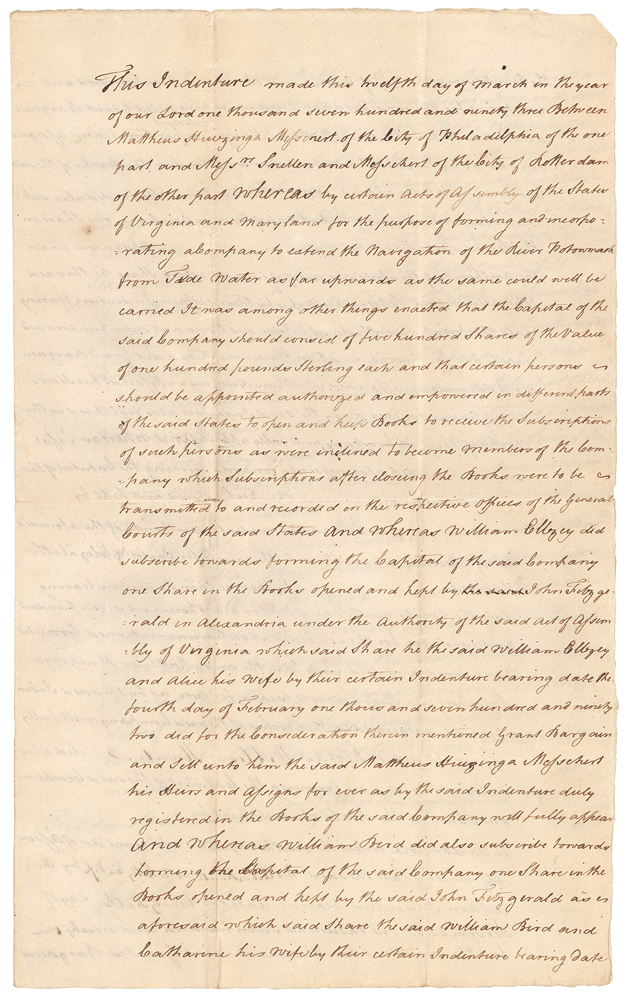 This Indenture made this twelfth day of march in the year
of our Lord one thousand seven hundred and ninety three Between
Mattheus Huizinga Messchert. of the City of Philadelphia of the one
part and Mess.rs Snellen and Messchert of the City of Rotterdam
of the other part Whereas by certain Acts of Assembly of the States
of Virginia and Maryland for the purpose of forming and incorpo-
-rating a Company to extend the Navigation of the River Potowmack
from Tide Water as far upwards as the same could well be
carried It was among other things enacted that the Capital of the
said Company should consist of five hundred Shares of the Value
of one hundred pounds Sterling each and that certain persons
should be appointed authorized and empowered in different parts
of the said States to open and keep Books to receive the Subscriptions
of such persons as were inclined to become members of the Com-
-pany which Subscriptions after closing the Books were to be
transmitted to and recorded in the respective offices of the General
Courts of the said States And Whereas William Ellzey did
subscribe towards forming the Capital of the said Company
one Share in the Books opened and kept by the said John Fitzge-
-rald in Alexandria under the Authority of the said Act of Assem
-bly of Virginia which said Share he the said William Ellzey
and Alice his Wife by their certain Indenture bearing date the
fourth day of February one thousand seven hundred and ninety
two did for the Consideration therein mentioned Grant Bargain
and Sell unto him the said Mattheus Huizinga Messchert
his Heirs and Assigns for ever as by the said Indenture duly
registered in the Books of the said Company will fully appear
And Whereas William Bird did also subscribe towards
forming the Capital of the said Company one Share in the
Books opened and kept by the said John Fitzgerald as
aforesaid which said Share the said William Bird and
Catharine his Wife by their certain Indenture bearing date